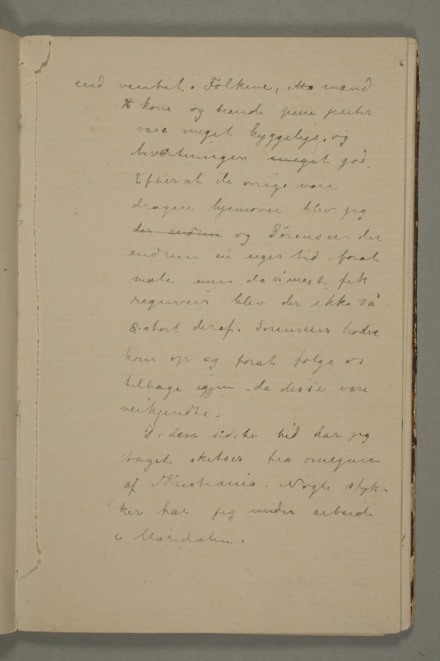 end ventet. Folkene, mand
kone og tvende pene jenter
vare meget hyggelige, og
bevertningen meget god.
Efterat de øvrige vare
dragne hjemover blev jeg
og Sørensen der
endnu en uges tid forat
male men da vi mest fik
regnveir blev der ikke så
stort deraf. Sørensens brødre
kom op og forat følge os
tilbage igjen da disse vare
veikjendte.
I den sidste tid har jeg
taget skitser fra omegnen
af Kristiania. Nogle styk-
ker har jeg under arbeide
i Maridalen.